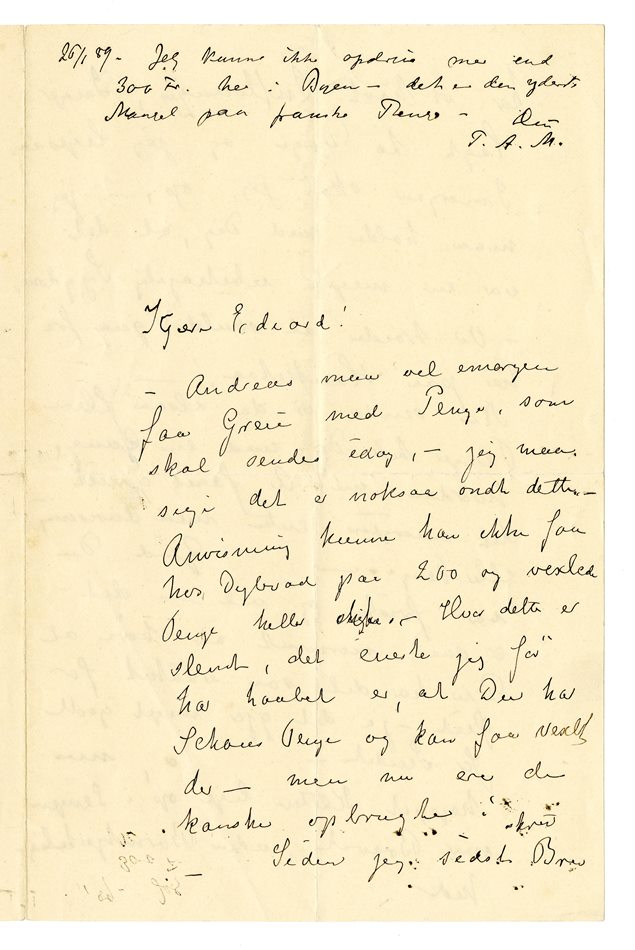 26/1 89 - Jeg kunne ikke opdrive mer end
300 Fr. her i Byen - det er den yderste
Mangel paa franske Penge - Din
T. A. M.
Kjære Edvard!
- Andreas maa vel imorgen
faa Greie med Penge, som
skal sendes idag, - jeg maa
sige det er noksaa ondt dette, -
Anvisning kunne han ikke faa
hos Dybwad paa 200 og vexlede
Penge heller ikke. - Hvor dette er
slemt, det eneste jeg før
har haabet er, at Du har
Schous Penge og kan faa vexlet
der - men nu ere de
kanske opbrugte!
- Siden jeg sidst skrev Brev